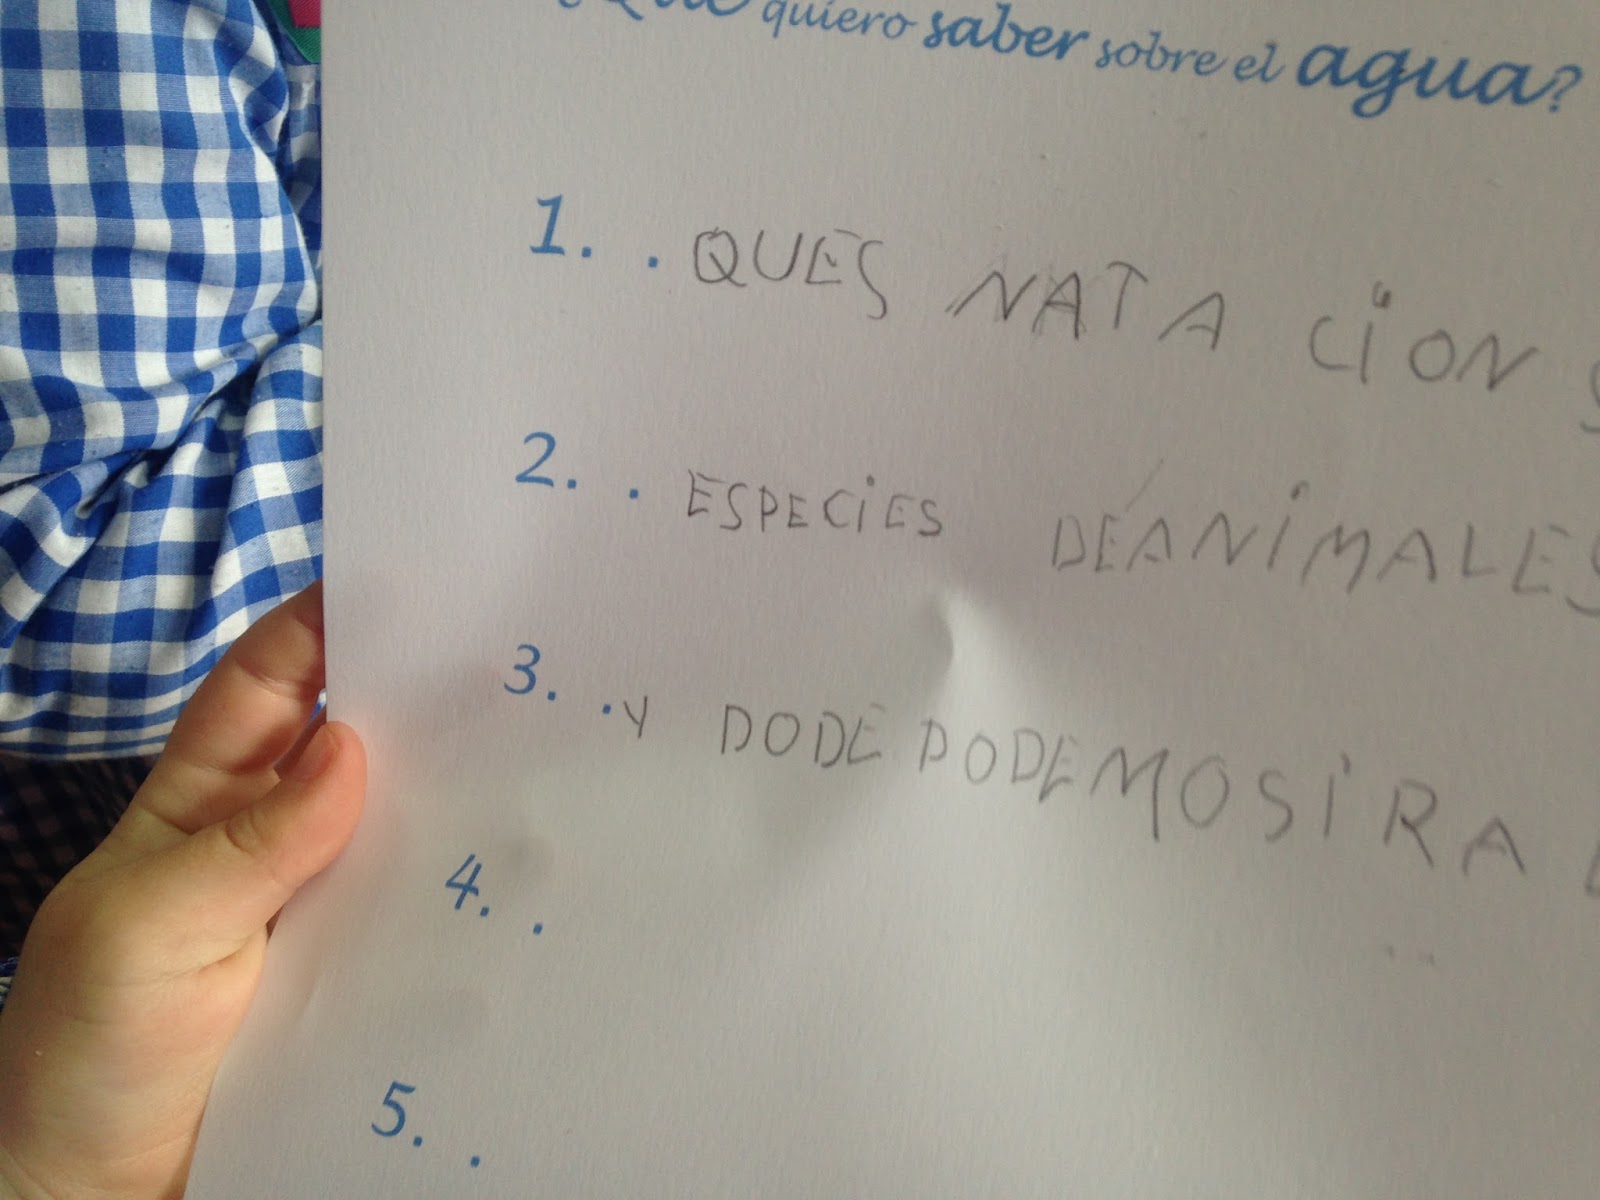 ¿Qué quiero saber sobre el agua?
1. . QUES NATA CION S
2. . ESPECIES DEANIMALES
3. . Y DODE PODEMOSIRA
4. .
5. .